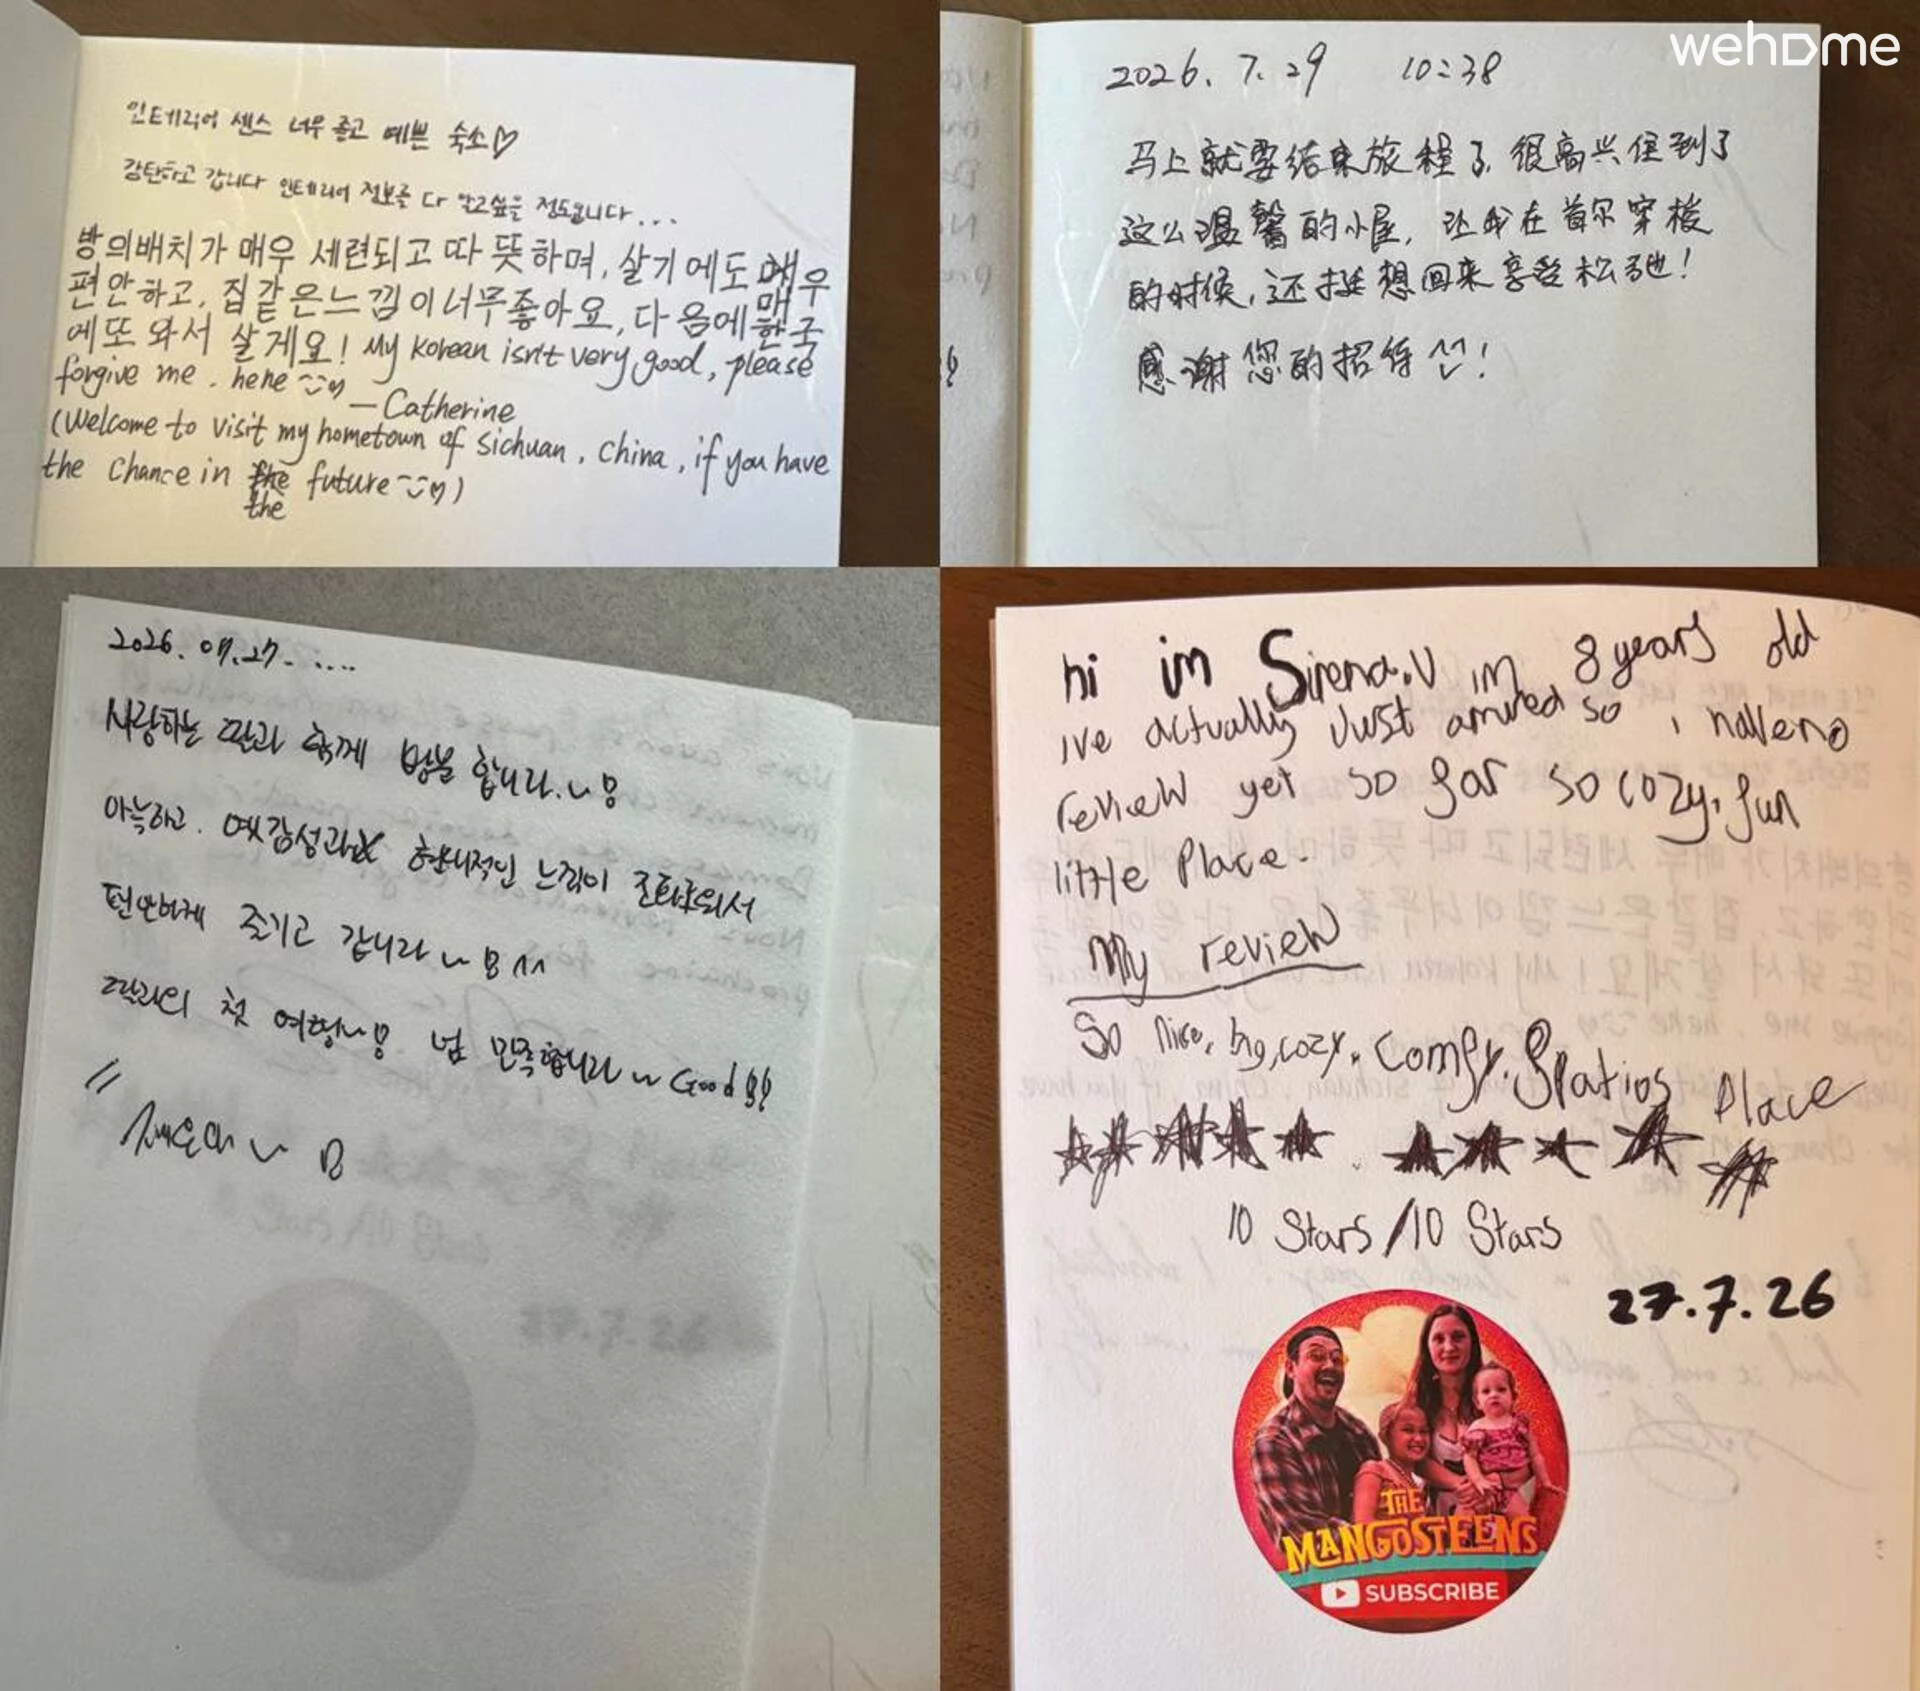 wehome
인테리어 센스 너무 좋고 예쁜 숙소♡
감탄하고 갑니다 인테리어 정보를 다 알고싶을 정도입니다...
방의배치가 매우 세련되고 따뜻하며, 살기에도 매우
편안하고, 집같은느낌이너무좋아요, 다음에한국
매
에또 와서 살게요! My Korean isn't very good, please
forgive me. hehe
—Catherine
(Welcome to visit my hometown of Sichuan, China, if you have
the chance in the future)
the
2026. 7. 29 10:38
马上就要结束旅程了, 很高兴住到了
这么温馨的小屋, 让我在首尔穿梭
的时候, 还挺想回来享受松弛!
感谢您的招待!
2026. 07. 27. ....
사랑하는 딸과 함께 방문 합니다.~
아늑하고. 옛감성과 현대적인 느낌이 조화로와서
편안하게 즐기고 갑니다~ ^^
딸과의 첫 여행~ 넘 만족합니다~ Good
hi im Sirena.V im 8 years old
ive actually Just arrived so i have no
review yet so far so cozy, fun
little Place.
My review
So nice, big, cozy, Comfy, Spatios Place
10 Stars/10 Stars
27.7.26
THE
MANGOSTEENS
SUBSCRIBE